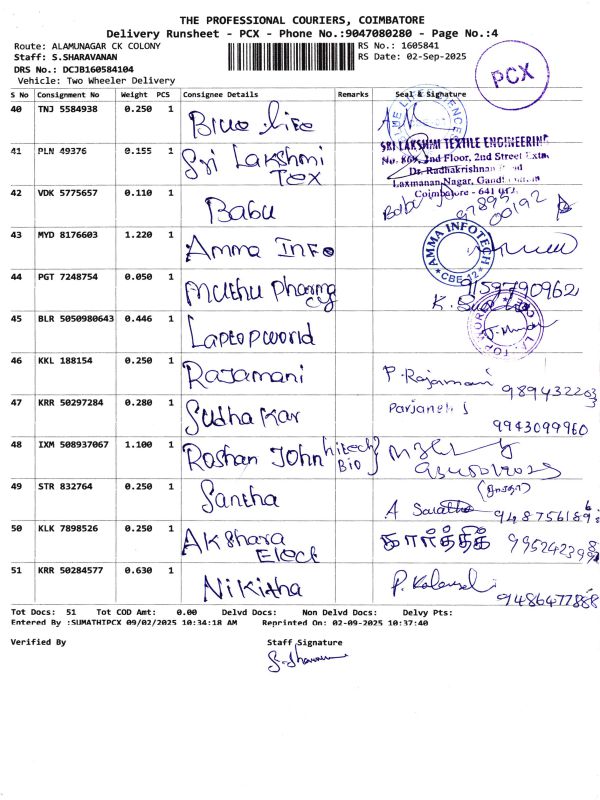 THE PROFESSIONAL COURIERS, COIMBATORE
Delivery Runsheet - PCX - Phone No.:9047080280 - Page No.:4
Route: ALAMUNAGAR CK COLONY RS No.: 1605841
Staff: S.SHARAVANAN RS Date: 02-Sep-2025
DRS No.: DCJB160584104
Vehicle: Two Wheeler Delivery
PCX
S No Consignment No Weight PCS Consignee Details Remarks Seal & Signature
40 TNJ 5584938 0.250 1 Blue life
41 PLN 49376 0.155 1 Sri Lakshmi
Tex
SRI LAKSHMI TEXTILE ENGINEERING
2nd Floor, 2nd Street Extn.
Dr. Radhakrishnan
Laxmanan Nagar,
Coimbatore - 641
42 VDK 5775657 0.110 1 Babu Babu
97895
00192
43 MYD 8176603 1.220 1 Amma Info
AMMA INFOTECH
CBE-12
44 PGT 7248754 0.050 1 Muthu Pharmacy 9597790962
45 BLR 5050980643 0.446 1 Laptopworld
46 KKL 188154 0.250 1 Rajamani P. Rajamani
47 KRR 50297284 0.280 1 Sudhakar 9943099960
48 IXM 508937067 1.100 1 Roshan John hitech
Bio
49 STR 832764 0.250 1 Santha A
50 KLK 7898526 0.250 1 Akshara கார்த்திக்
Elect
51 KRR 50284577 0.630 1 Nikitha P.
9486477888
Tot Docs: 51 Tot COD Amt: 0.00 Delvd Docs: Non Delvd Docs: Delvy Pts:
Entered By :SUMATHIPCX 09/02/2025 10:34:18 AM Reprinted On: 02-09-2025 10:37:40
Verified By Staff Signature